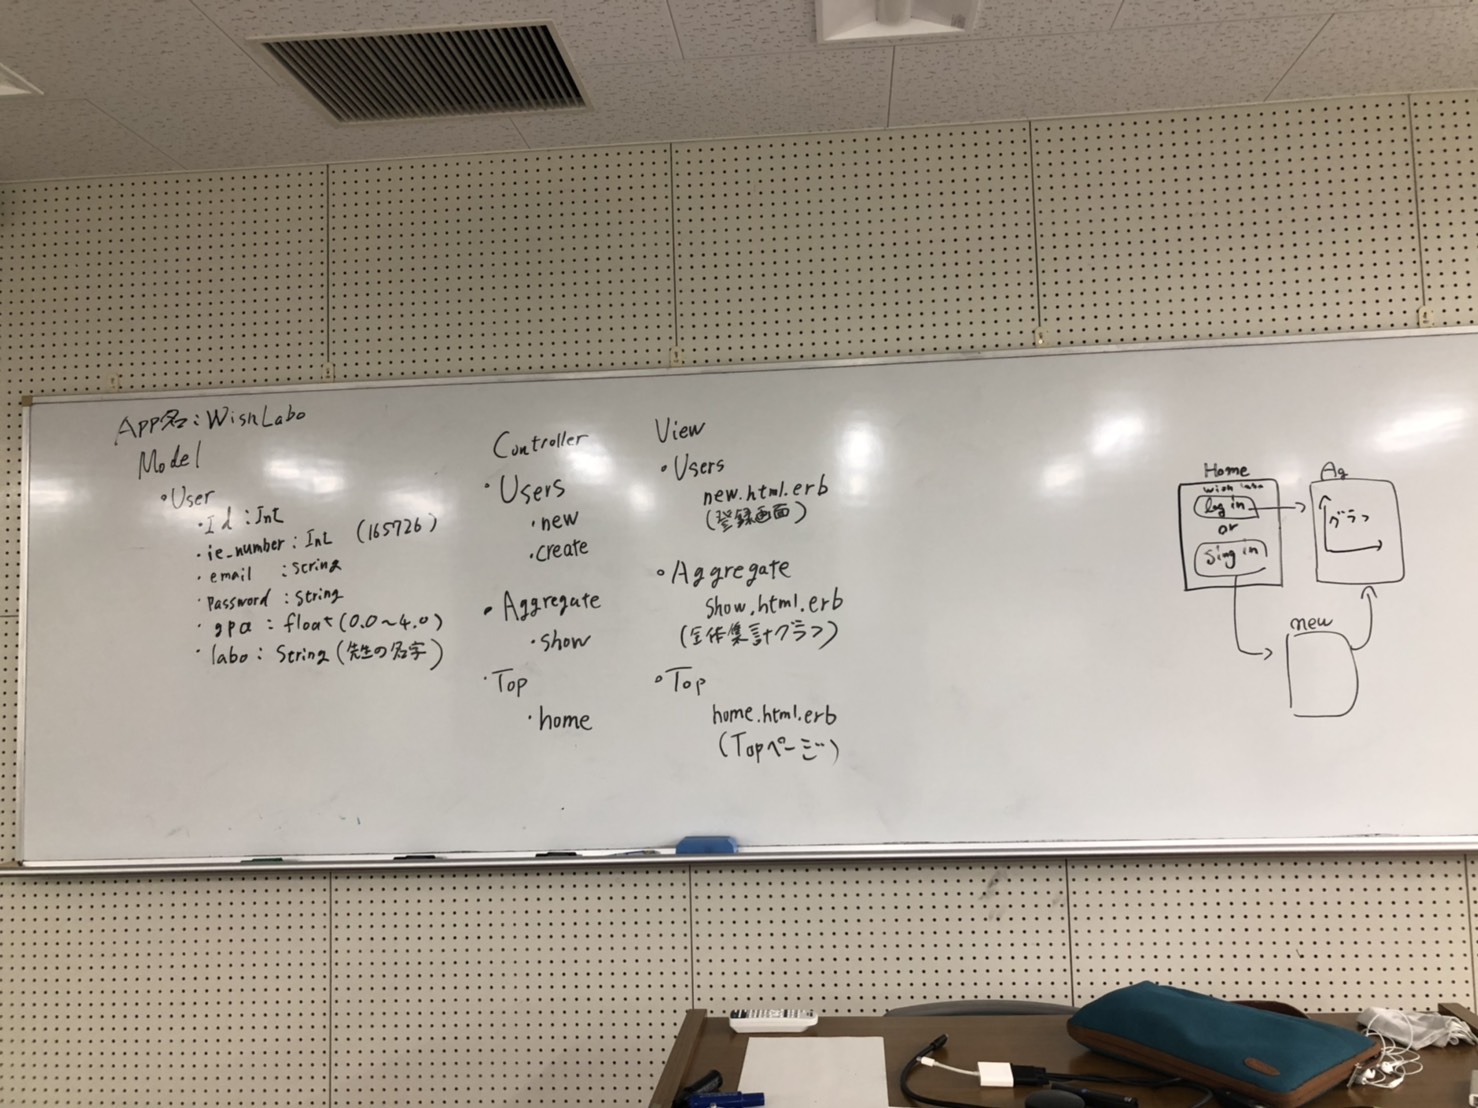 App名：WishLabo
Model
・User
・Id : Int
・ie_number : Int (165726)
・email : String
・Password : String
・gpa : float (0.0〜4.0)
・labo : String (先生の名字)
Controller
・Users
・new
・create
・Aggregate
・show
・Top
・home
View
・Users
new.html.erb
(登録画面)
・Aggregate
show.html.erb
(全体集計グラフ)
・Top
home.html.erb
(Topページ)
Home
wish labo
log in
or
Sing in
Ag
グラフ
new